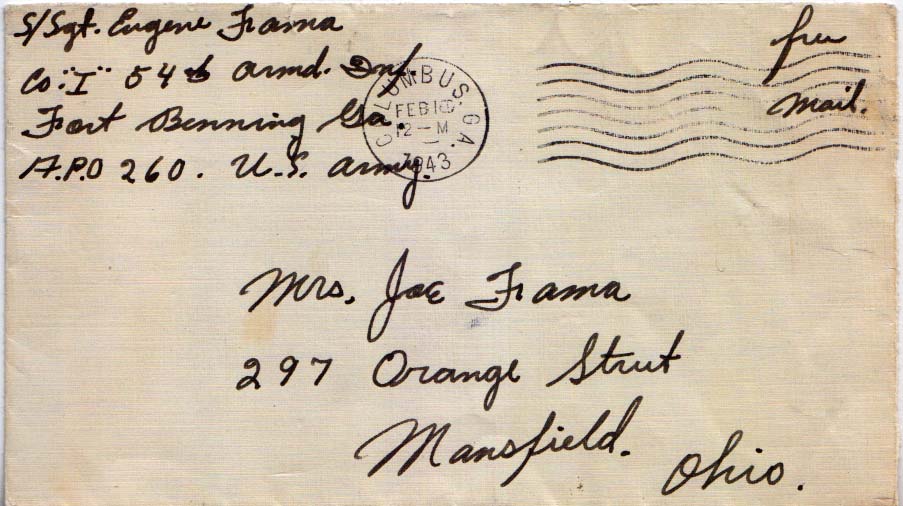 S/Sgt. Eugene Frama
Co. "I" 54th Armd. Inf.
Fort Benning Ga.
A.P.O 260. U.S. Army.
COLUMBUS, GA.
FEB 10
12-M
1943
free
mail.
Mrs. Joe Frama
297 Orange Street
Mansfield.
Ohio.